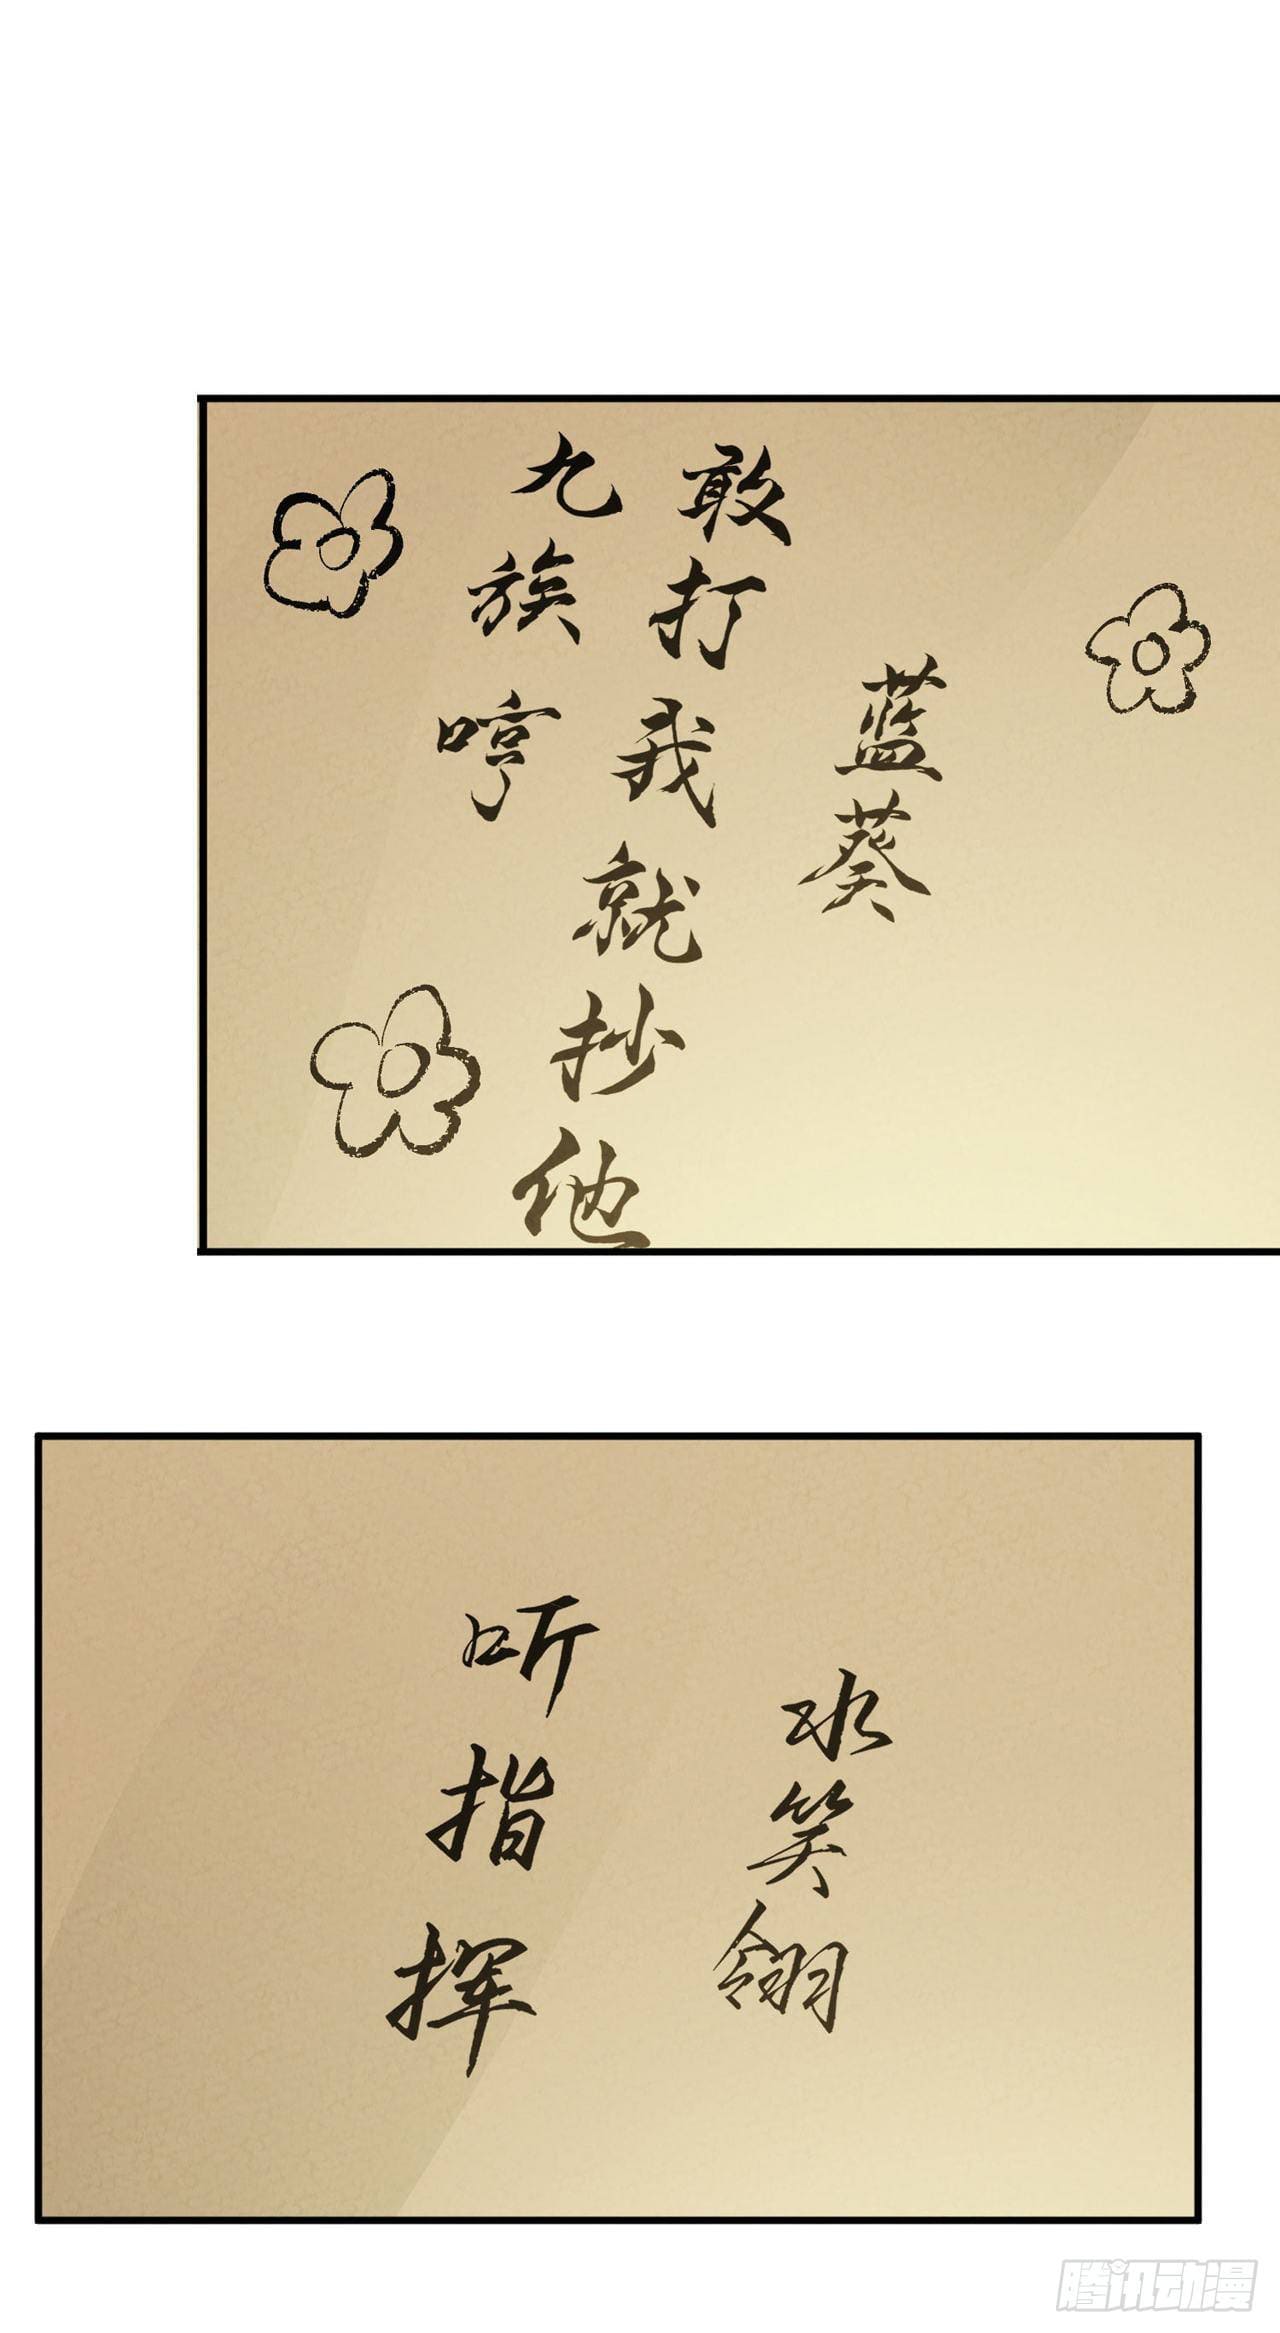 蓝葵
敢打我就抄他
九族哼
水笑翎
听指挥
腾讯动漫